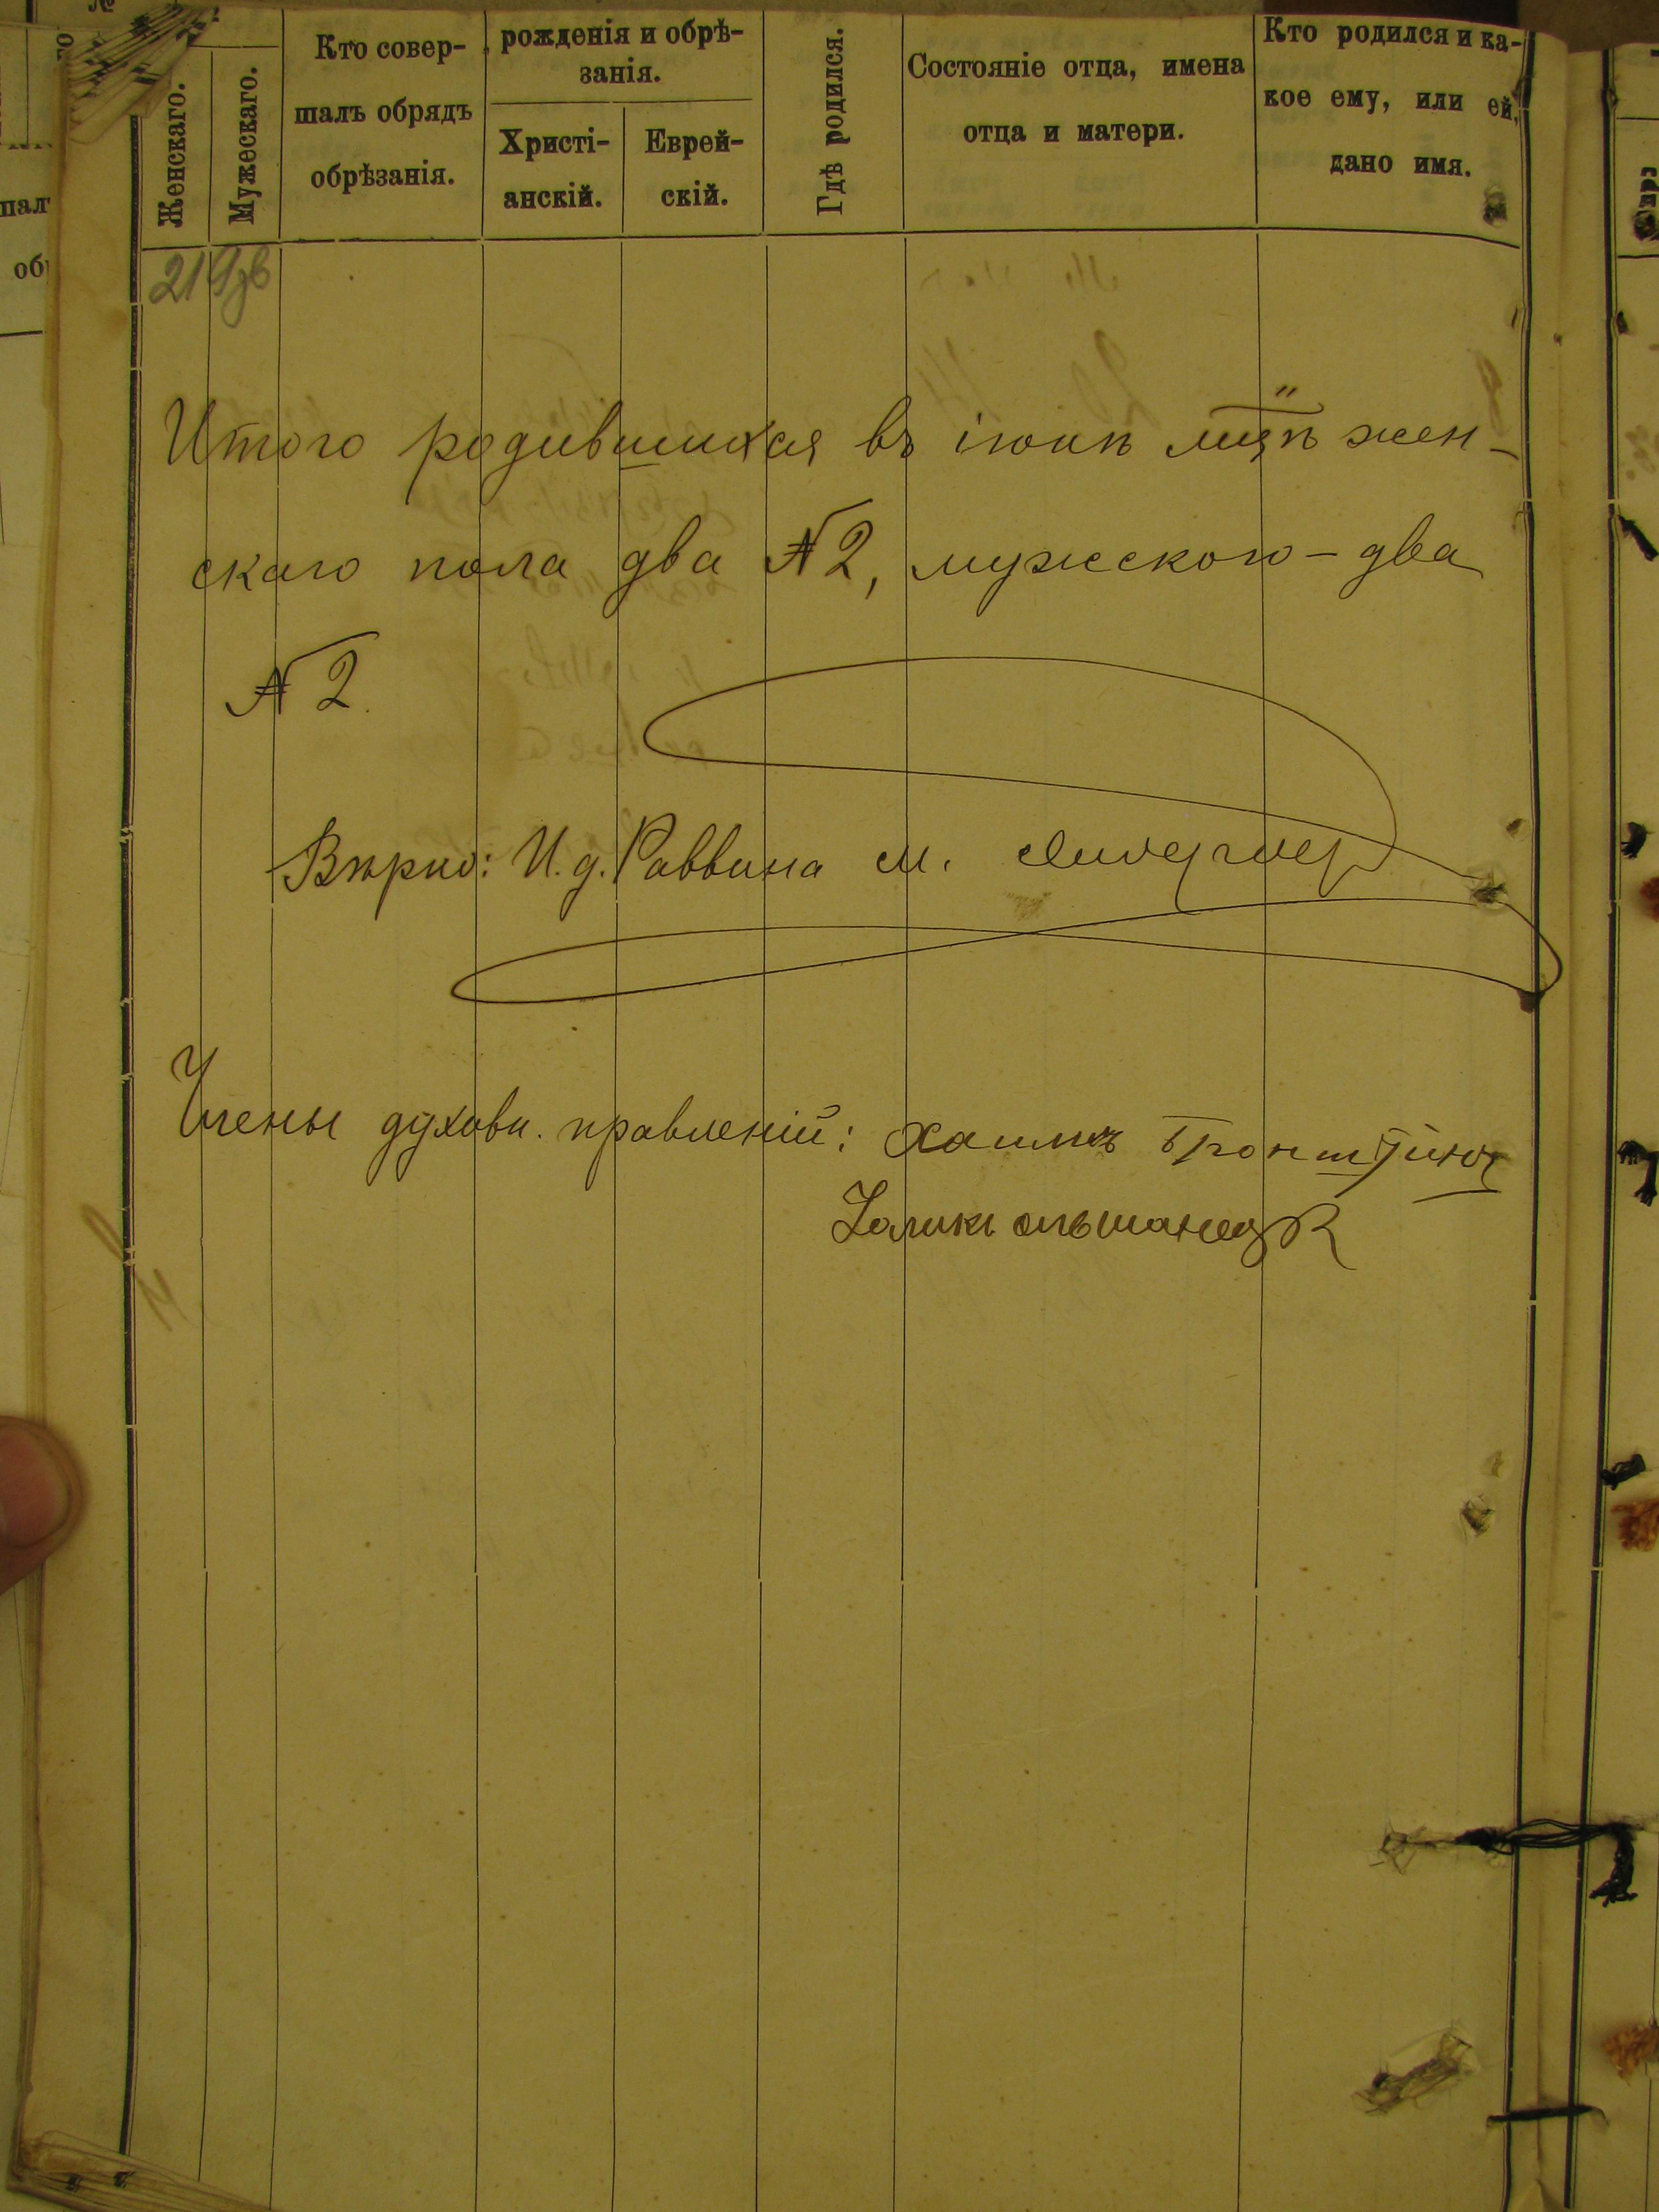 №
Женскаго.
Мужескаго.
Кто совер-
шалъ обрядъ
обрѣзанія.
рожденія и обрѣ-
занія.
Христі-
анскій.
Еврей-
скій.
Гдѣ родился.
Состояніе отца, имена
отца и матери.
Кто родился и ка-
кое ему, или ей,
дано имя.
Итого родившихся въ іюнѣ мцѣ жен-
скаго пола два №2, мужскаго – два
№2.
Вѣрно: И. д. Раввина М.
Члены духовн. правленій: Хаимъ Бронштейнъ